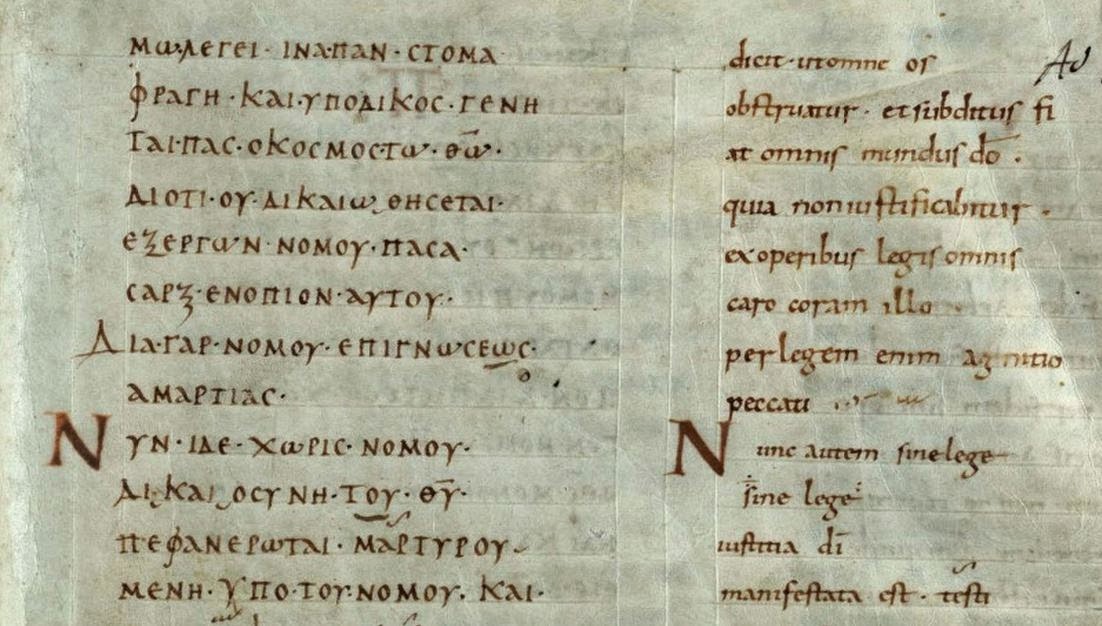 ΜΩ·ΛΕΓΕΙ· ΙΝΑ·ΠΑΝ· CΤΟΜΑ
ΦΡΑΓΗ·ΚΑΙ·ΥΠΟΔΙΚΟC·ΓΕΝΗ
ΤΑΙ·ΠΑC·ΟΚΟCΜΟC·ΤΩ·Θ̅Ω̅·
ΔΙΟΤΙ·ΟΥ·ΔΙΚΑΙΩΘΗCΕΤΑΙ·
ΕΞΕΡΓΩΝ·ΝΟΜΟΥ·ΠΑCΑ·
CΑΡΞ·ΕΝΟΠΙΟΝ·ΑΥΤΟΥ·
ΔΙΑ·ΓΑΡ·ΝΟΜΟΥ·ΕΠΙΓΝΩCΕΩC·
ΑΜΑΡΤΙΑC·
ΝΥΝ·ΙΔΕ·ΧΩΡΙC·ΝΟΜΟΥ·
ΔΙΚΑΙΟCΥΝΗ·ΤΟΥ·Θ̅Υ̅·
ΠΕΦΑΝΕΡΩΤΑΙ·ΜΑΡΤΥΡΟΥ
ΜΕΝΗ·ΥΠΟ·ΤΟΥ·ΝΟΜΟΥ·ΚΑΙ·
dicit·utomne os
obstruatur· etsubditus fi
at omnis mundus do̅·
quia noniustificabitur·
exoperibus legisomnis
caro coram illo
perlegem enim agnitio
peccati
Nunc autem sinelege
sine lege
iustitia di̅
manifestata est· testi